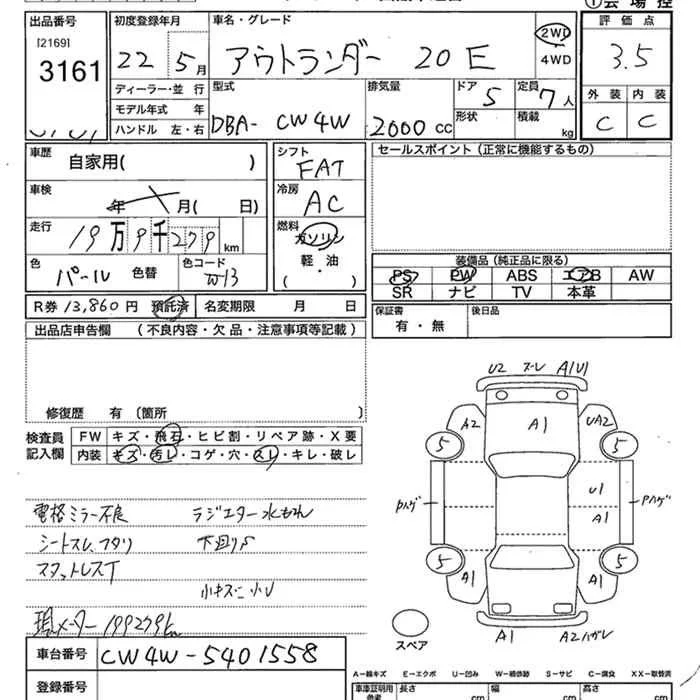 出品番号 初度登録年月 車名・グレード ①会場控
[2169]
3161
22 5月 アウトランダー 20 E 2WD
4WD
評価点
3.5
外装 内装
C C
ディーラー・並行
モデル年式 年
ハンドル 左・右
型式
DBA- CW4W
排気量
2000 CC
ドア 5
形状
定員 7人
積載 kg
車歴 自家用( )
車検 年 月( 日)
走行 19万9千279 km
色 パール 色替 色コード W13
シフト
FAT
冷房
AC
燃料
ガソリン
軽・油
( )
セールスポイント(正常に機能するもの)
装備品(純正品に限る)
PS PW ABS エアB AW
SR ナビ TV 本革
R券 13,860円 預託済 名変期限 月 日
保証書 有・無 後日品
出品店申告欄 (不良内容・欠品・注意事項等記載)
修復歴 有 〔箇所 〕
検査員
記入欄
FW キズ・飛石・ヒビ割・リペア跡・X要
内装 キズ・汚レ・コゲ・穴・スレ・キレ・破レ
電格ミラー不良 ラジエター水もれ
シートスレ、フタリ 下廻りS
スタットレスT
小キズ、小U
現メーター199279km
U2 スレ A1U1
A2 A1 UA2
5 5
Pハゲ U1 Pハゲ
A1
5 5
A1 A1
A1 A2ハガレ
スペア
車台番号 CW4W-5401558
登録番号
A−線キズ E−エクボ U−凹ミ W−補修跡 S−サビ C−腐食 XX−取替済
車庫証明用
参考
長さ cm 幅 cm 高さ cm